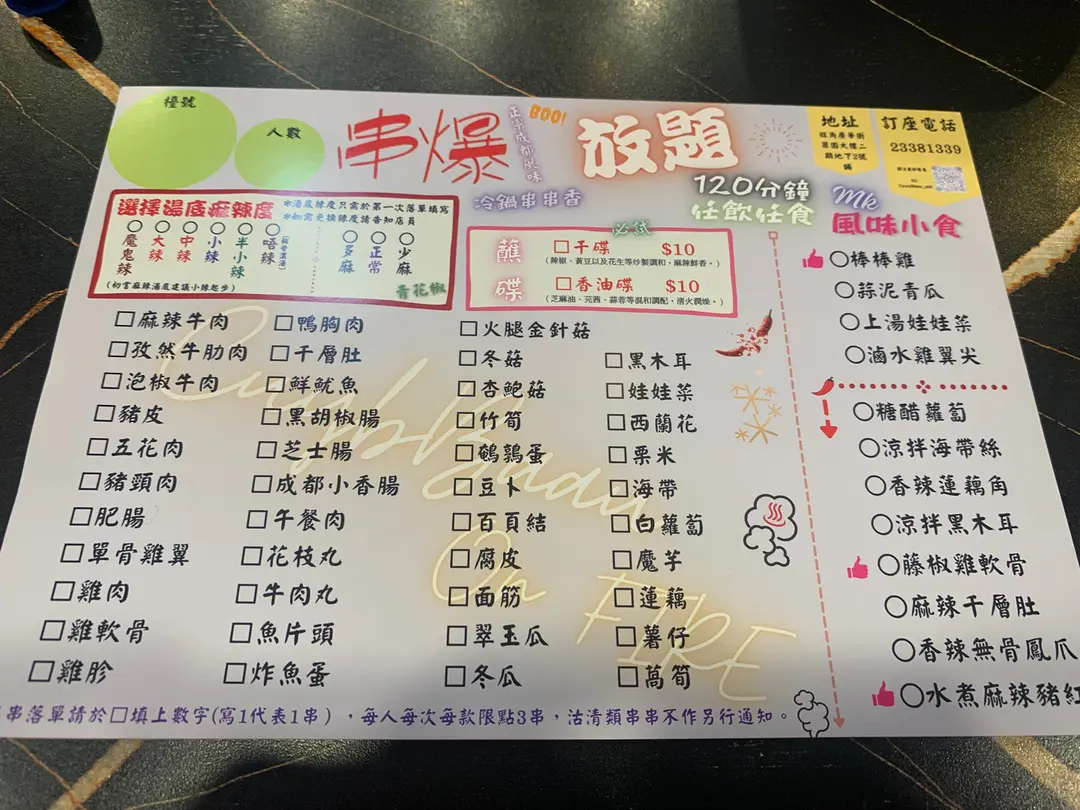 檯號
人數
串爆
正宗成都風味
BOO!
放題
120分鐘
任飲任食
冷鍋串串香
地址
旺角廣華街
翠園大樓二
期地下2號
舖
訂座電話
23381339
選擇湯底麻辣度
*湯底辣度只需於第一次落單填寫
*如需更換辣度請告知店員
○魔鬼辣
○大辣
○中辣
○小辣
○半小辣
○唔辣
○多麻
○正常
○少麻
(初嘗麻辣湯底建議小辣起步)
青花椒
必試
蘸碟
□干碟 $10
(辣椒、黃豆以及花生等炒製調和,麻辣鮮香。)
□香油碟 $10
(芝麻油、芫茜、蒜蓉等混和調配,清火潤燥。)
□麻辣牛肉
□孜然牛肋肉
□泡椒牛肉
□豬皮
□五花肉
□豬頸肉
□肥腸
□單骨雞翼
□雞肉
□雞軟骨
□雞胗
□鴨胸肉
□千層肚
□鮮魷魚
□黑胡椒腸
□芝士腸
□成都小香腸
□午餐肉
□花枝丸
□牛肉丸
□魚片頭
□炸魚蛋
□火腿金針菇
□冬菇
□杏鮑菇
□竹筍
□鵪鶉蛋
□豆卜
□百頁結
□腐皮
□面筋
□翠玉瓜
□冬瓜
□黑木耳
□娃娃菜
□西蘭花
□粟米
□海帶
□白蘿蔔
□魔芋
□蓮藕
□薯仔
□萵筍
On FIRE
Mk
風味小食
○棒棒雞
○蒜泥青瓜
○上湯娃娃菜
○滷水雞翼尖
○糖醋蘿蔔
○涼拌海帶絲
○香辣蓮藕角
○涼拌黑木耳
○藤椒雞軟骨
○麻辣千層肚
○香辣無骨鳳爪
○水煮麻辣豬紅
串落單請於□填上數字(寫1代表1串),每人每次每款限點3串,沽清類串串不作另行通知。